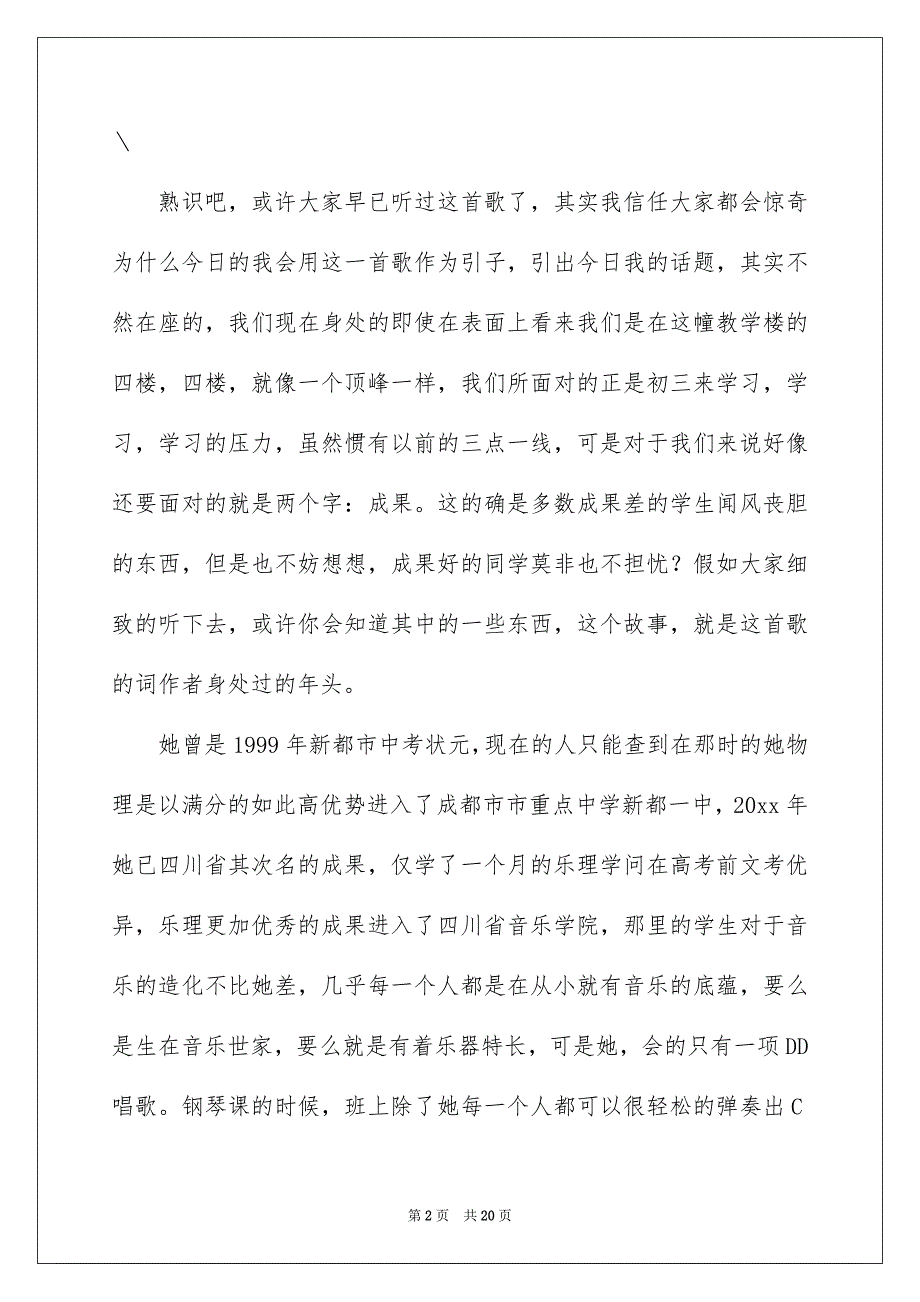 \
熟识吧，或许大家早已听过这首歌了，其实我信任大家都会惊奇
为什么今日的我会用这一首歌作为引子，引出今日我的话题，其实不
然在座的，我们现在身处的即使在表面上看来我们是在这幢教学楼的
四楼，四楼，就像一个顶峰一样，我们所面对的正是初三来学习，学
习，学习的压力，虽然惯有以前的三点一线，可是对于我们来说好像
还要面对的就是两个字：成果。这的确是多数成果差的学生闻风丧胆
的东西，但是也不妨想想，成果好的同学莫非也不担忧？假如大家细
致的听下去，或许你会知道其中的一些东西，这个故事，就是这首歌
的词作者身处过的年头。
她曾是 1999 年新都市中考状元,现在的人只能查到在那时的她物
理是以满分的如此高优势进入了成都市市重点中学新都一中，20xx 年
她已四川省其次名的成果，仅学了一个月的乐理学问在高考前文考优
异，乐理更加优秀的成果进入了四川省音乐学院，那里的学生对于音
乐的造化不比她差，几乎每一个人都是在从小就有音乐的底蕴，要么
是生在音乐世家，要么就是有着乐器特长，可是她，会的只有一项 DD
唱歌。钢琴课的时候，班上除了她每一个人都可以很轻松的弹奏出 C
第 2 页 共 20 页